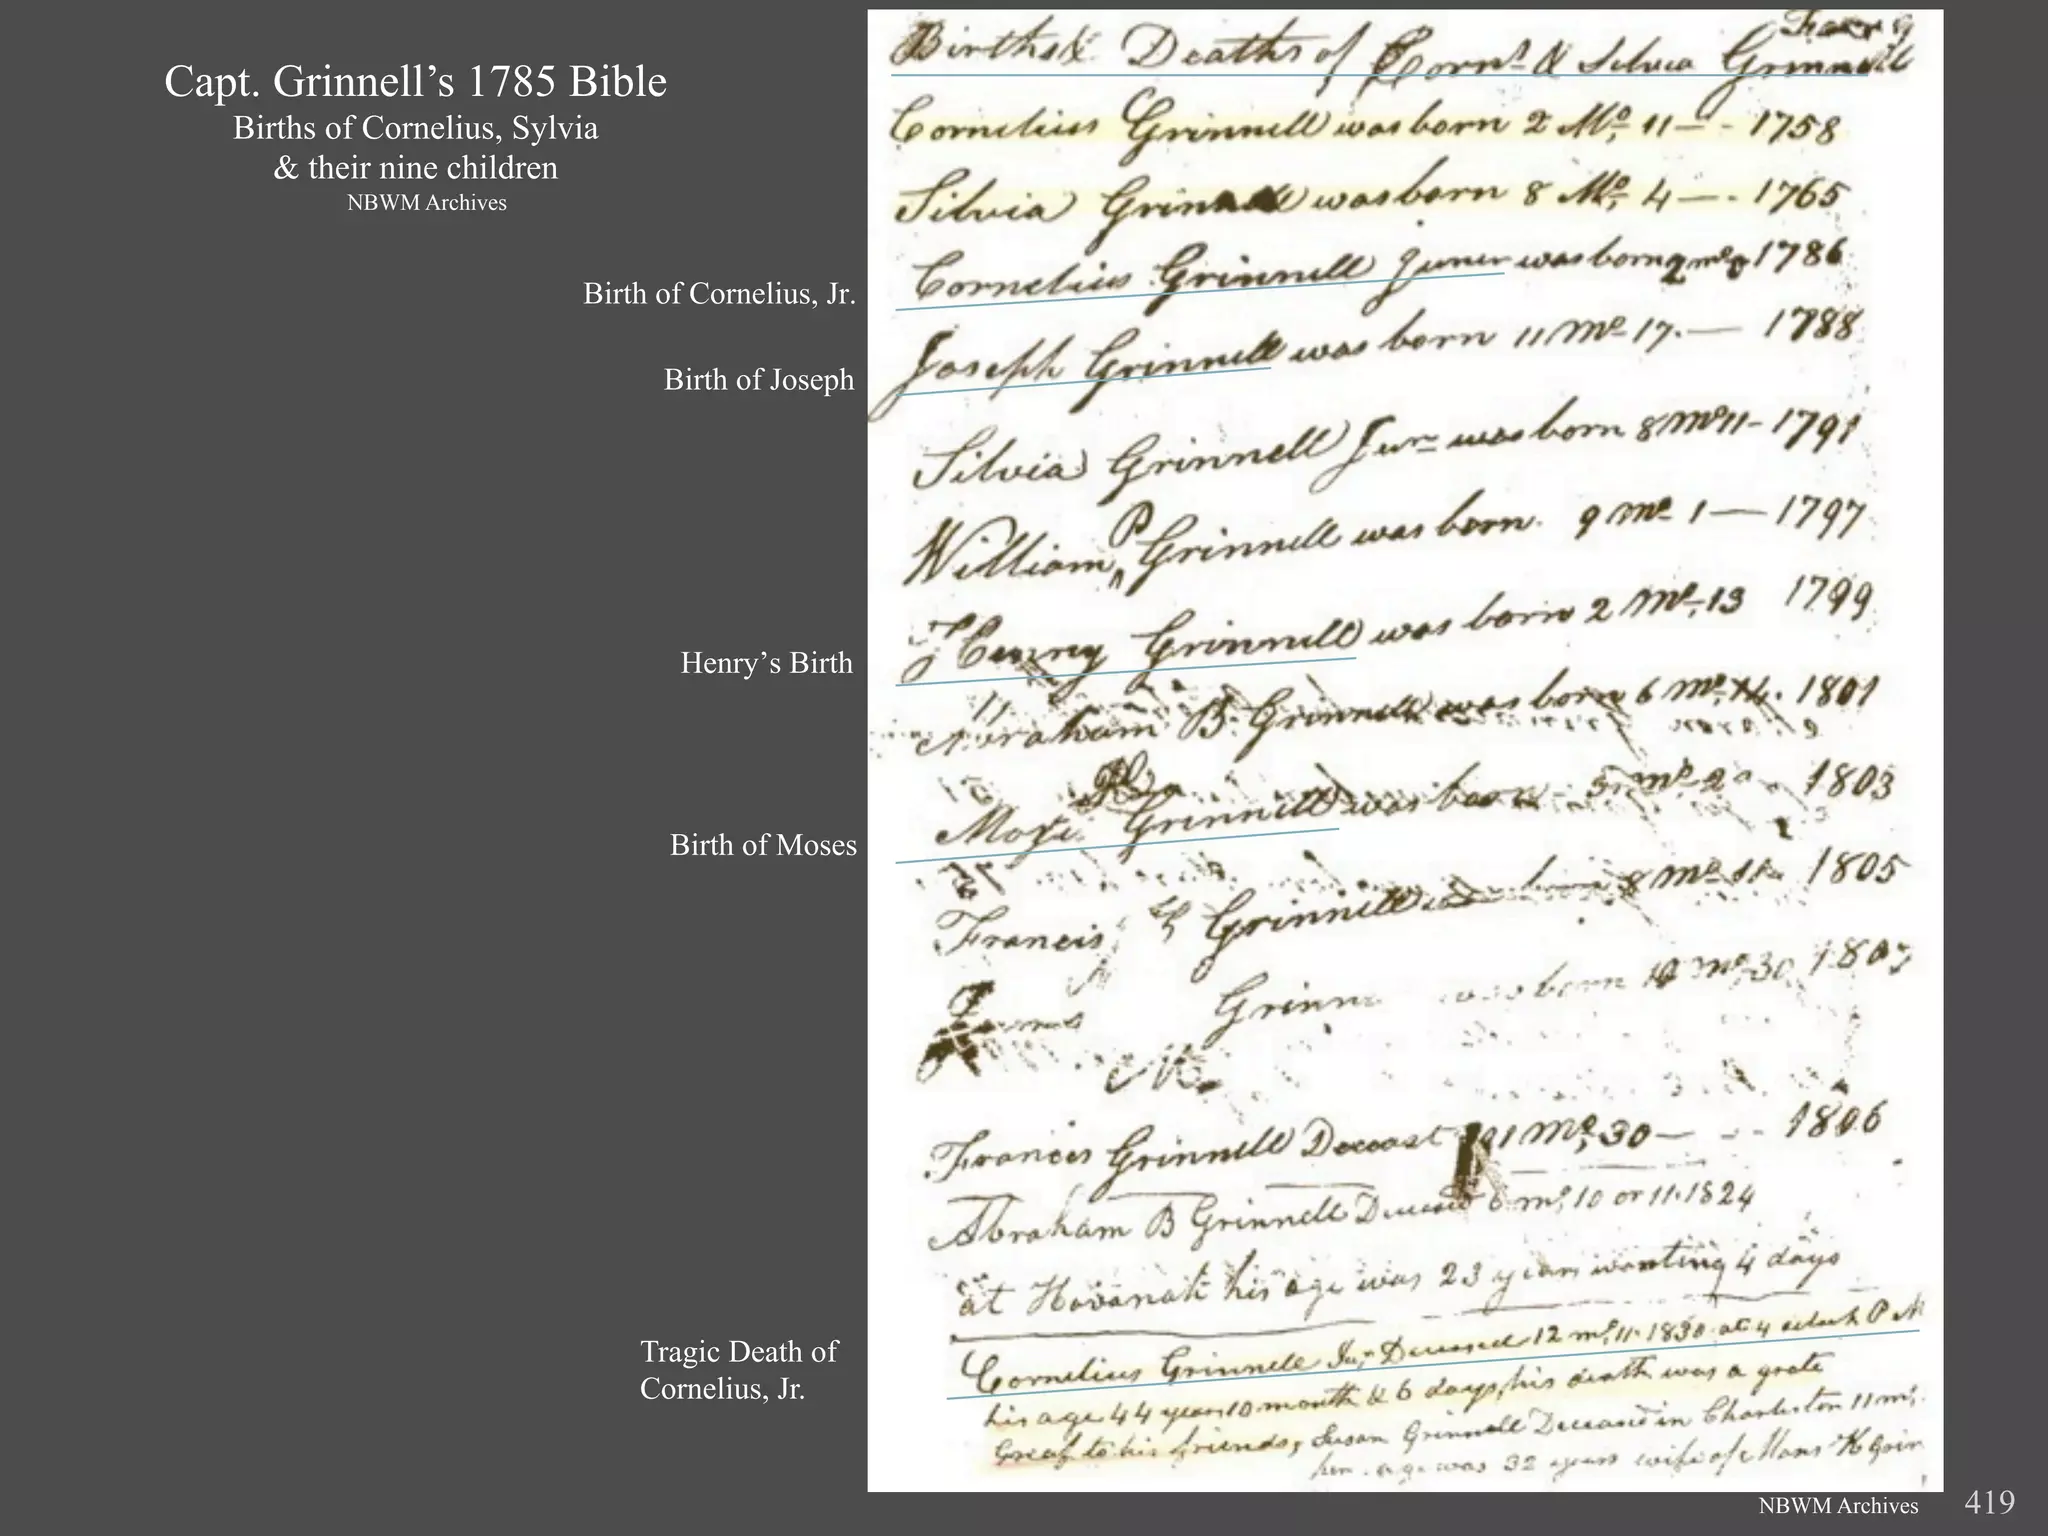 Capt. Grinnell’s 1785 Bible
Births of Cornelius, Sylvia
& their nine children
NBWM Archives
Birth of Cornelius, Jr.
Birth of Joseph
Henry’s Birth
Birth of Moses
Tragic Death of
Cornelius, Jr.
Births & Deaths of Corns & Silvia Grinnell
Cornelius Grinnell was born 2 Mo, 11 — - 1758
Silvia Grinnell was born 8 Mo, 4 — - 1765
Cornelius Grinnell Juner was born 2 mo 1786
Joseph Grinnell was born 11 Mo 17. — 1788
Silvia Grinnell Junr was born 8 Mo 11 - 1791
William P Grinnell was born 9 Mo 1 — 1797
Henry Grinnell was born 2 Mo, 13 1799
Abraham B. Grinnell was born 6 Mo, 14. 1801
Grinnell was born 3 mo 2 1803
Francis Grinnell born 8 Mo 11 1805
Grinn was born mo 30 1807
Francis Grinnell Deceast 1 Mo, 30 — - - 1806
Abraham B Grinnell Deceased 6 mo, 10 or 11. 1824
at Havanah his age was 23 years wanting 4 days
Cornelius Grinnell Jur Deceased 12 mo, 11. 1830 at 4 oclock P M
his age 44 years 10 month & 6 days, his death was a grate
Greaf to his friends, Susan Grinnell Deceased in Charleston 11 mo,
her age was 32 years wife of Moses H Grin
NBWM Archives
419